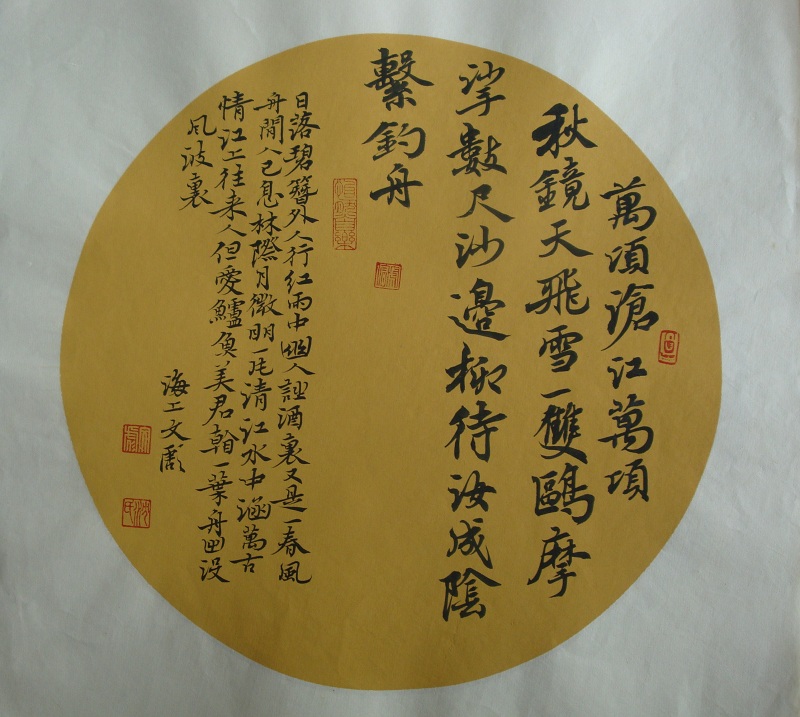 萬頃滄江萬頃
秋鏡天飛雪一雙鷗摩
挲數尺沙邊柳待汝成陰
繫釣舟
日落碧簪外人行紅雨中幽人詩酒裏又是一春風
舟閒人已息林際月微明一片清江水中涵萬古
情江上往來人但愛鱸魚美君看一葉舟出沒
風波裏
海上文